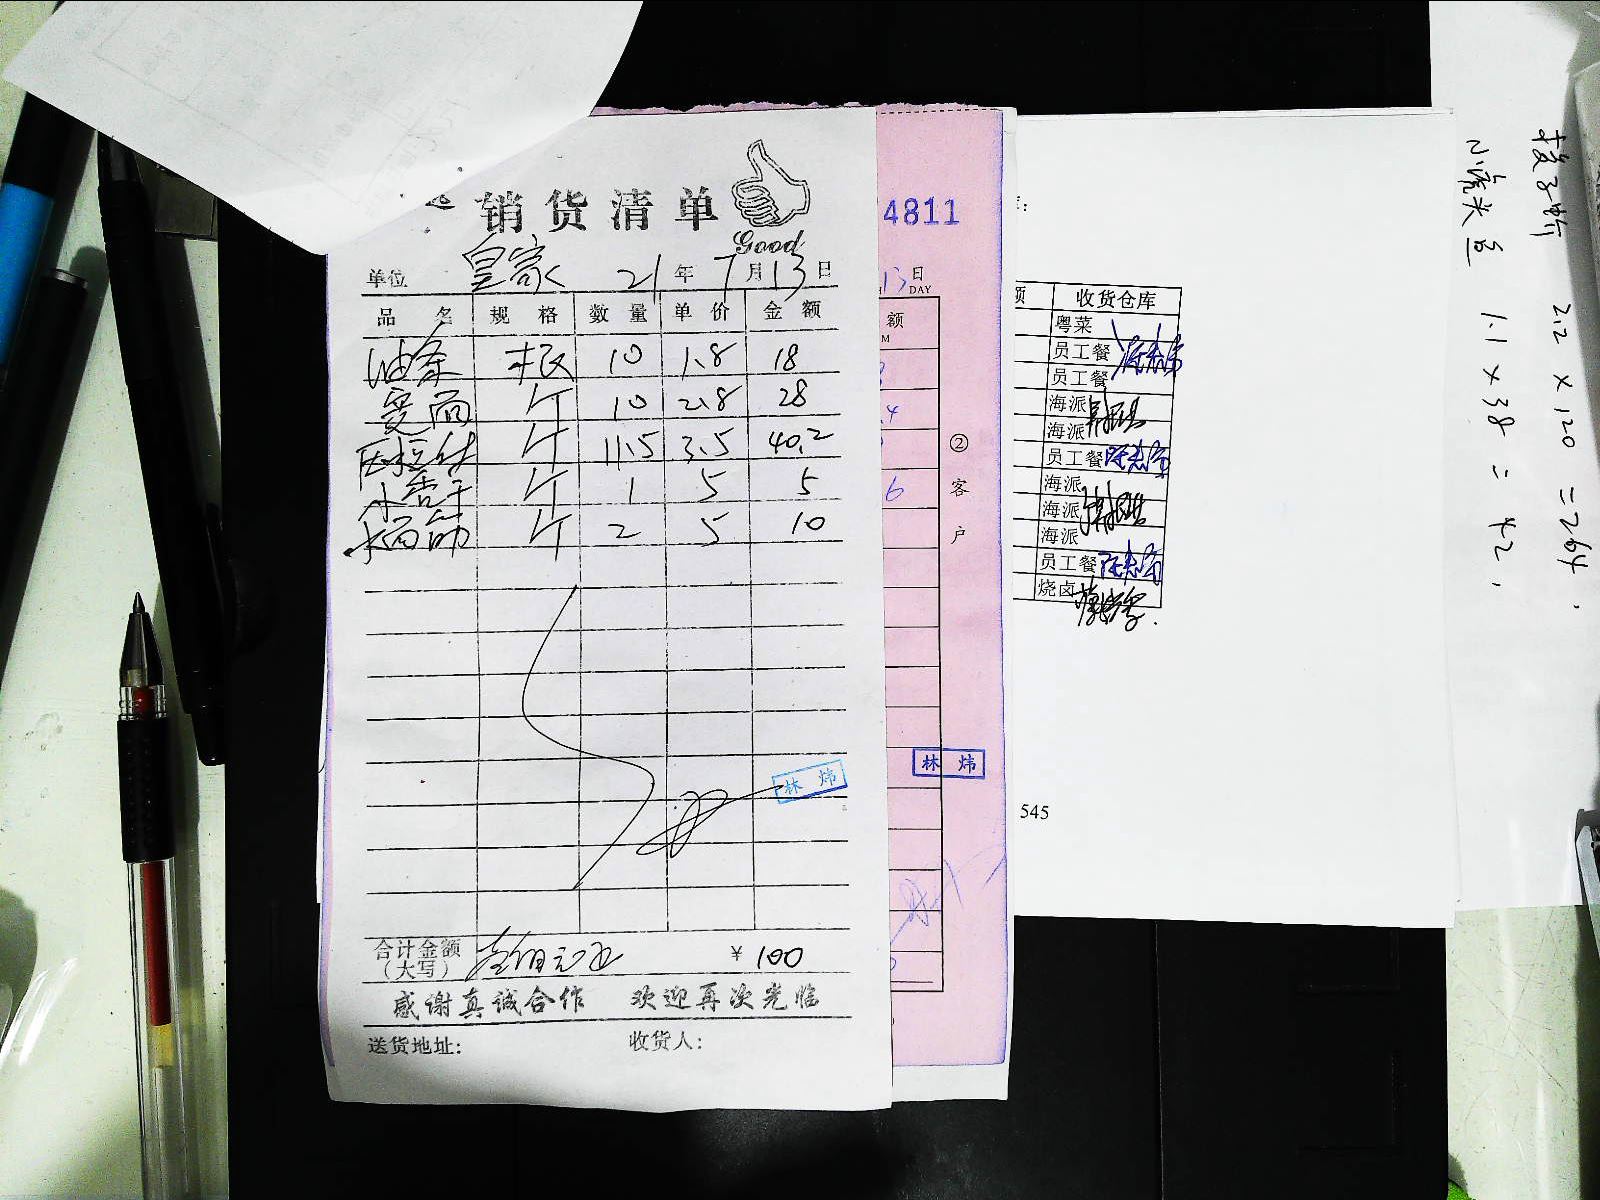 销货清单
Good
单位 皇家 21年7月13日
品名 规格 数量 单价 金额
油条 根 10 1.8 18
斤 10 2.8 28
斤 11.5 3.5 40.2
斤 1 5 5
斤 2 5 10
林炜
合计金额 ¥100
(大写)
感谢真诚合作 欢迎再次光临
送货地址: 收货人:
4811
13日
DAY
额
M
4
6
②客户
林炜
额 收货仓库
粤菜
员工餐
员工餐
海派
海派
员工餐
海派
海派
海派
员工餐
烧卤
545
2.2 × 120 = 264.
小虎头鱼 1.1 × 38 = 42.